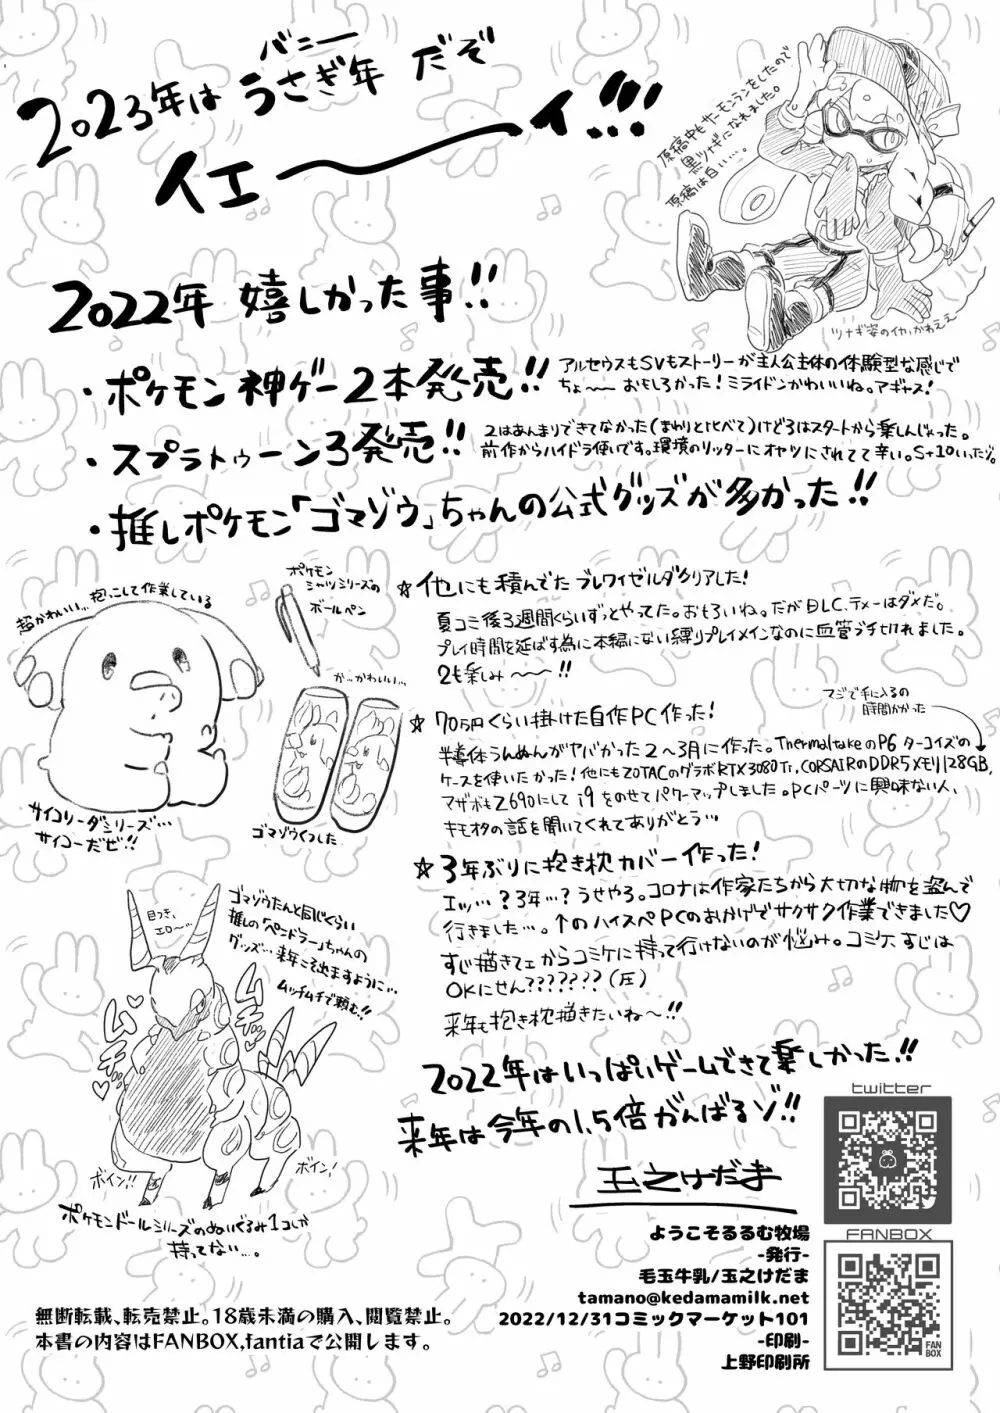 2023年は うさぎ年 だぞ
バニー
イエーーイ!!!
原稿中もサーモンランをしたので
黒ツナギになれました。
原稿は白い…。
ツナギ姿のイカ、かわええ
2022年 嬉しかった事!!
・ポケモン神ゲー2本発売!!
アルセウスもSVもストーリーが主人公主体の体験型な感じで
ちょ〜〜おもしろかった!ミライドンかわいいね。アギャス!
・スプラトゥーン3発売!!
2はあんまりできてなかった(まわりと比べて)けど3はスタートから楽しんじゃった。
前作からハイドラ使いです。環境のリッターにオヤツにされてて辛い。S+10いったゾ。
・推しポケモン「ゴマゾウ」ちゃんの公式グッズが多かった!!
超かわいい…抱っこして作業している
サイコソーダシリーズ…
サイコーだぜ!!
ポケモン
シャツシリーズの
ボールペン
か…かわいい…
ゴマゾウくつした
☆他にも積んでたブレワイゼルダクリアした!
夏コミ後3週間くらいずっとやってた。おもろいね。だがDLC、テメーはダメだ。
プレイ時間を延ばす為に本編にない縛りプレイメインなのに血管ブチ切れました。
2も楽しみ〜〜!!
☆70万円くらい掛けた自作PC作った!
マジで手に入るの
時間かかった
半導体うんぬんがヤバかった2〜3月に作った。ThermaltakeのP6 ターコイズの
ケースを使いたかった!他にもZOTACのグラボRTX3080Ti,CORSAIRのDDR5メモリ128GB,
マザボもZ690にして i9をのせてパワーアップしました。PCパーツに興味ない人、
キモオタの話を聞いてくれてありがとう…
☆3年ぶりに抱き枕カバー作った!
エッ…?3年…?うせやろ。コロナは作家たちから大切な物を盗んで
行きました…。↑のハイスペPCのおかげでサクサク作業できました♡
すじ描きてェからコミケに持って行けないのが悩み。コミケ、すじは
OKにせん???????(圧)
来年も抱き枕描きたいね〜!!
目つき、
エロ〜…
ゴマゾウたんと同じくらい
推しの「ペンドラー」ちゃんの
グッズ…来年こそ出ますように…
ムッチムチで頼む!!
ムチ…♡
ムチ…♡
ボイン!!
ボイン!
ポケモンドールシリーズのぬいぐるみ1コしか
持ってない…。
2022年はいっぱいゲームできて楽しかった!!
来年は今年の1.5倍がんばるゾ!!
玉之けだま
twitter
FANBOX
FAN
BOX
ようこそるるむ牧場
-発行-
毛玉牛乳/玉之けだま
tamano@kedamamilk.net
2022/12/31コミックマーケット101
-印刷-
上野印刷所
無断転載、転売禁止。18歳未満の購入、閲覧禁止。
本書の内容はFANBOX,fantiaで公開します。